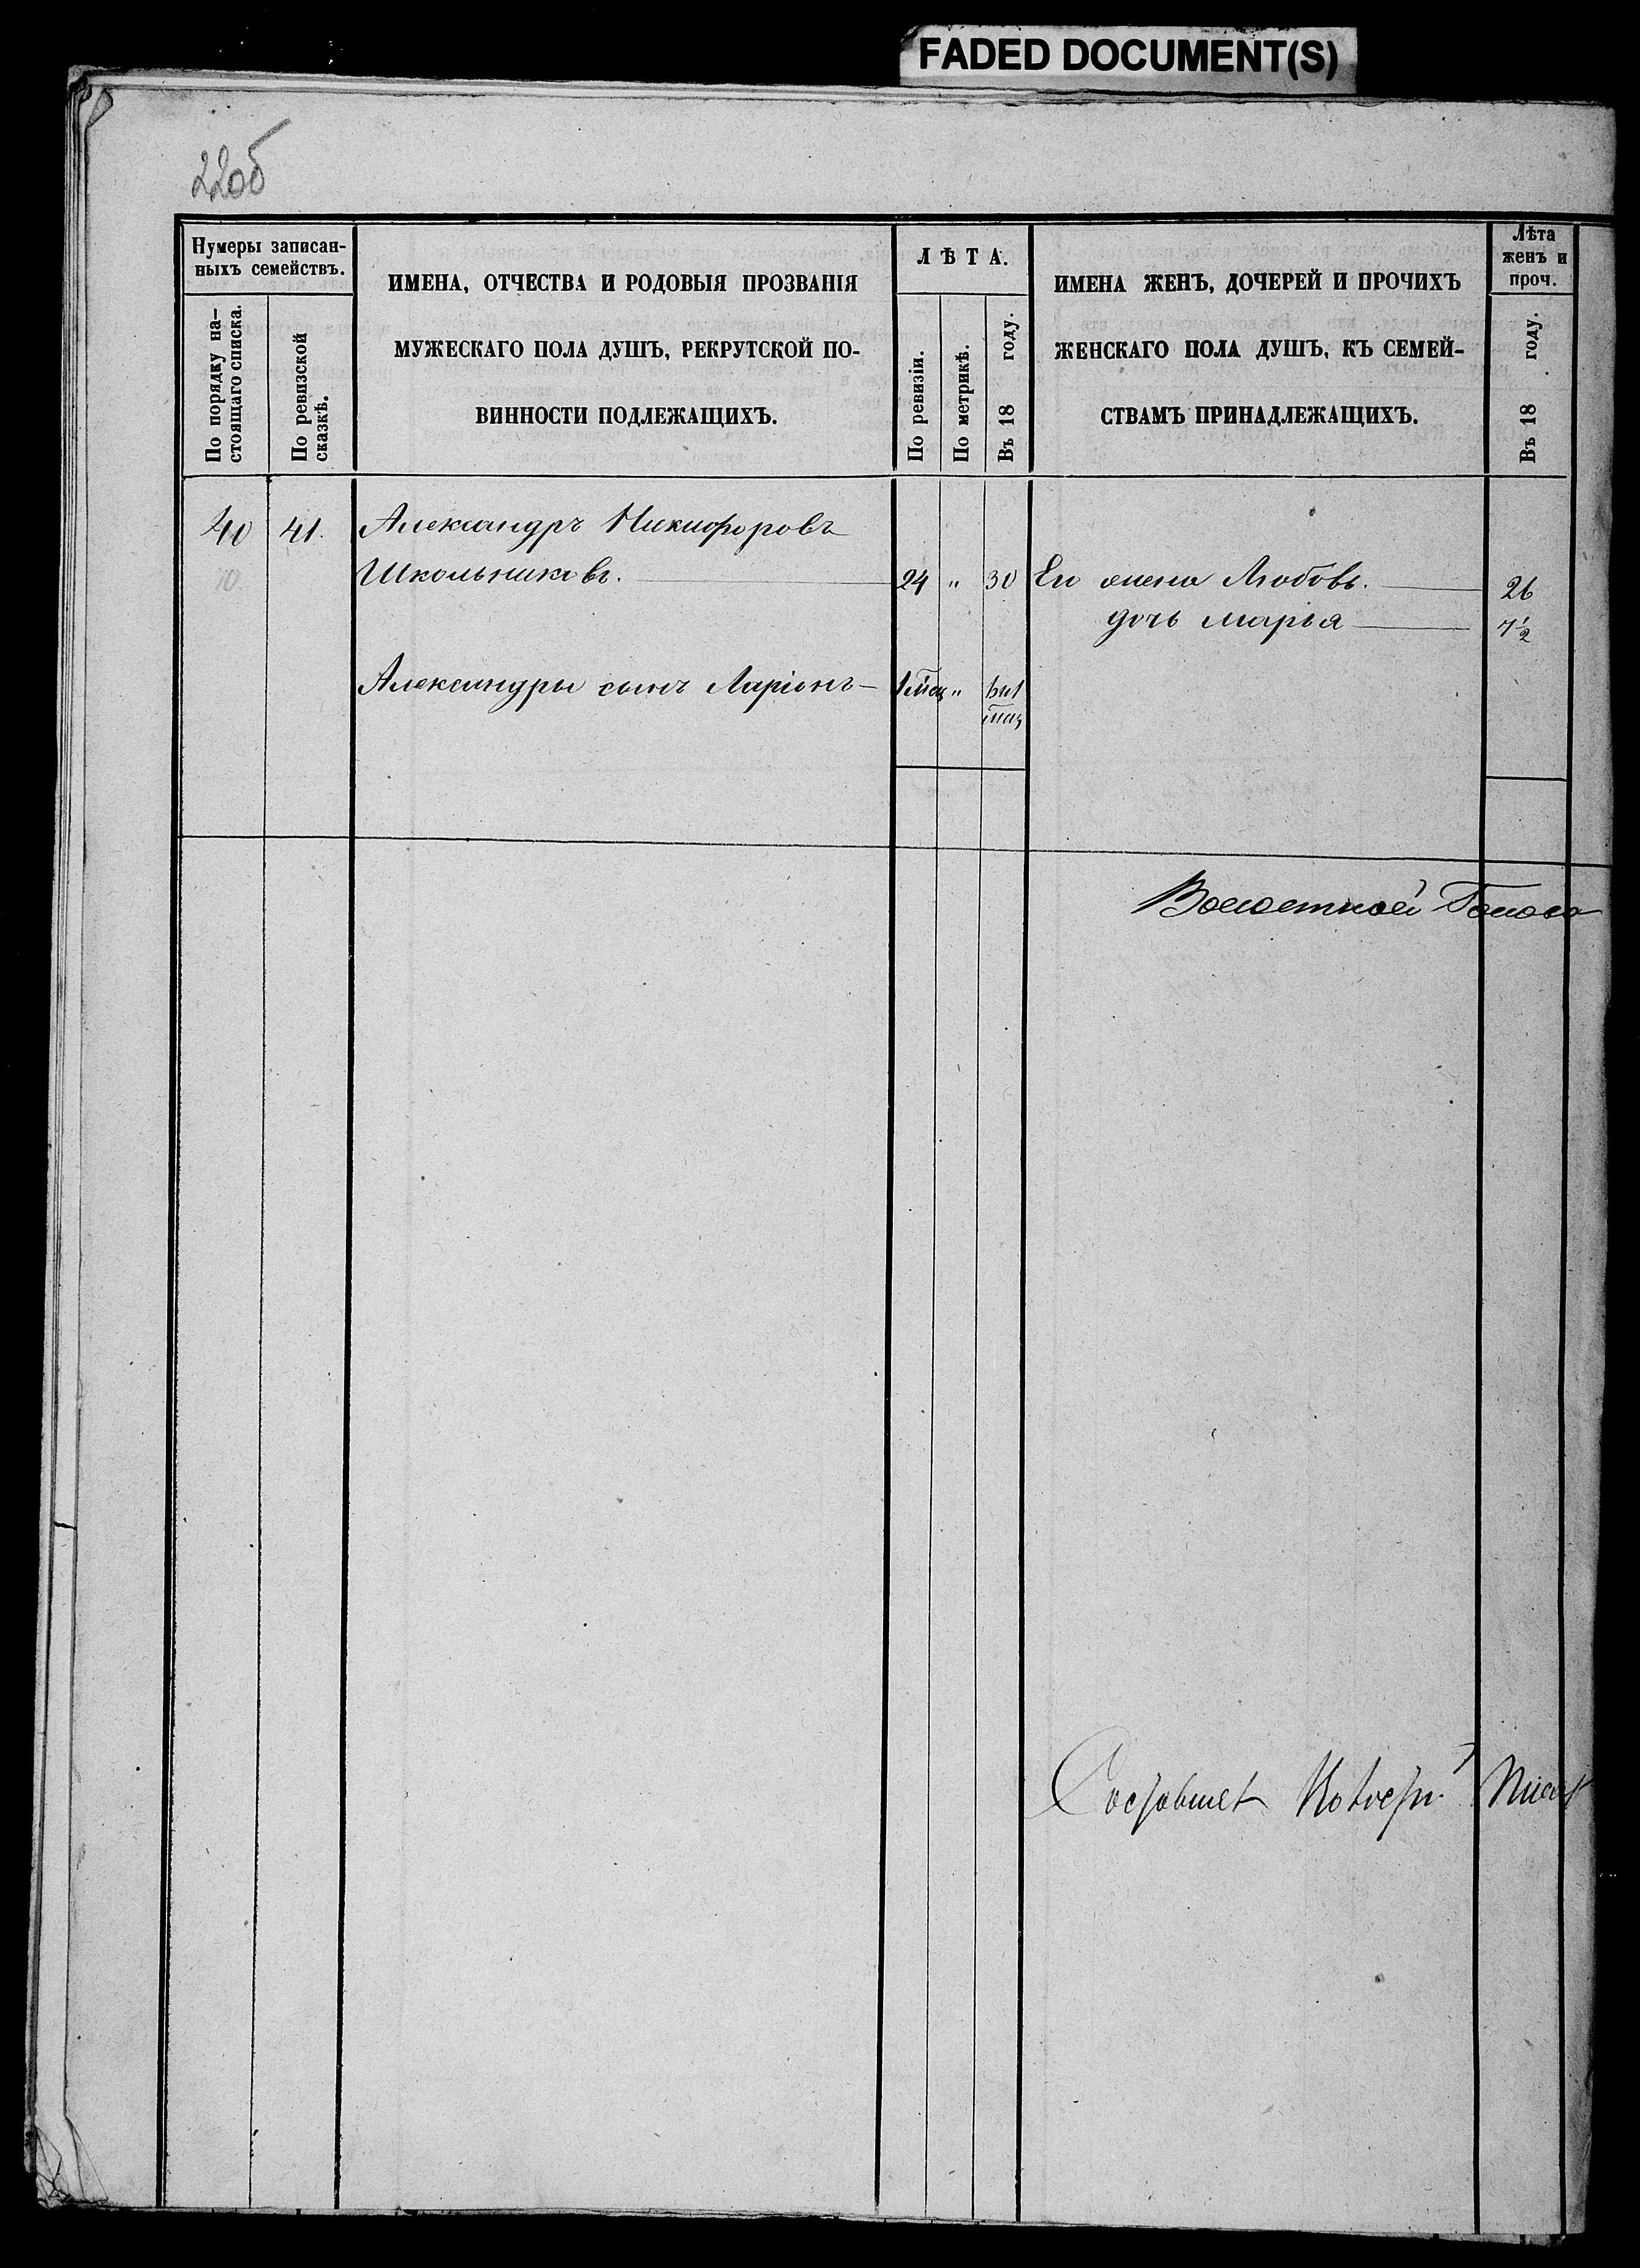 FADED DOCUMENT(S)
22об
Нумеры записан-
ныхъ семействъ.
По порядку на-
стоящаго списка.
По ревизской
сказкѣ.
ИМЕНА, ОТЧЕСТВА И РОДОВЫЯ ПРОЗВАНІЯ
МУЖЕСКАГО ПОЛА ДУШЪ, РЕКРУТСКОЙ ПО-
ВИННОСТИ ПОДЛЕЖАЩИХЪ.
ЛѢТА.
По ревизіи.
По метрикѣ.
Въ 18 году.
ИМЕНА ЖЕНЪ, ДОЧЕРЕЙ И ПРОЧИХЪ
ЖЕНСКАГО ПОЛА ДУШЪ, КЪ СЕМЕЙ-
СТВАМЪ ПРИНАДЛЕЖАЩИХЪ.
Лѣта
женъ и
проч.
Въ 18 году.
40 41. Александръ Никифоровъ
Школьниковъ. 24 " 30 Его жена Любовь. 26
дочь Марья 7½
Александры сынъ Ларіонъ 1 мѣсц " 6 и 1
мсц
Волостной Голова